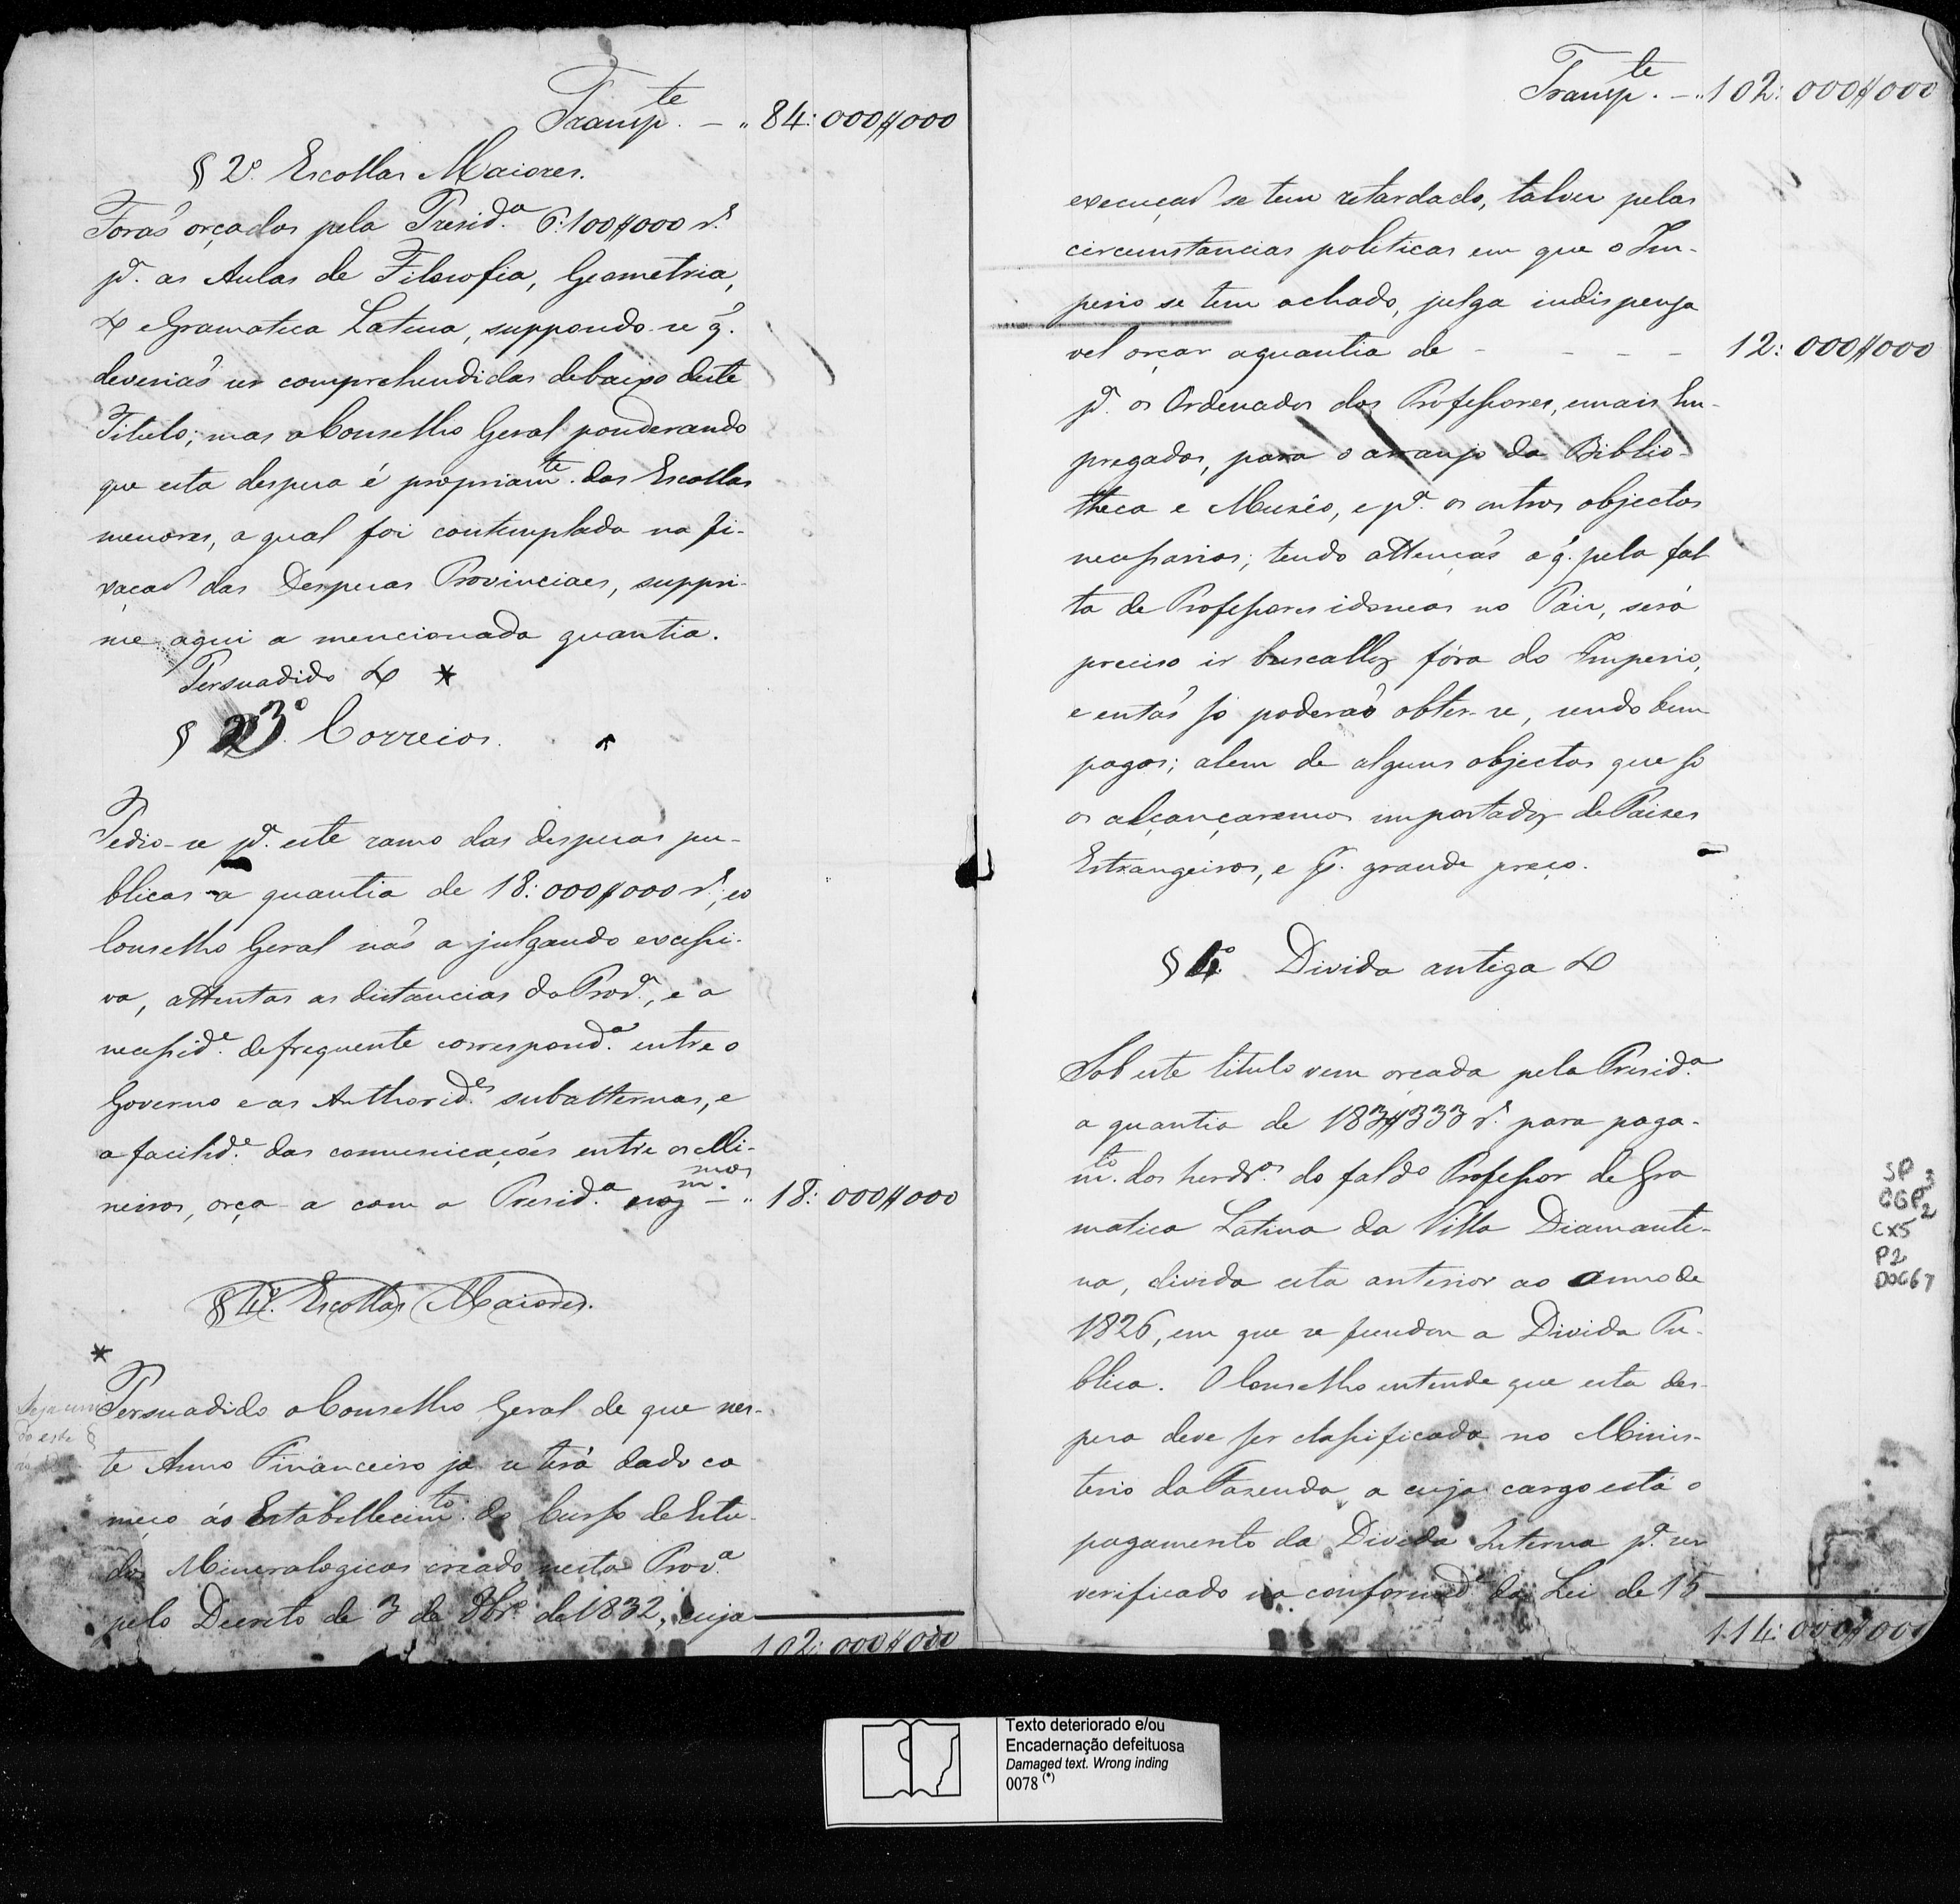 Transp.te — " 84:000$000
§ 2º. Escollas Maiores.
Foraõ orçados pela Presid.a 6:100$000 r.s
p.a as Aulas de Filosofia, Geometria,
& e Gramatica Latina, suppondo-se q̃.
deveriaõ ser comprehendidas debaixo deste
Titulo; mas o Conselho Geral ponderando
que esta despesa é propriam.te das Escollas
menores, a qual foi contemplada na fi-
xaçaõ das Despesas Provinciaes, suppri-
me aqui a mencionada quantia.
Persuadido & *
§ 3º. Correios.
Pedio-se p.a este ramo das despesas pu-
blicas a quantia de 18:000$000 r.s; e o
Conselho Geral naõ a julgando excessi-
va, attentas as distancias da Prov.a, e a
necessid.e de frequente correspond.a entre o
Governo e as Authorid.es subalternas, e
a facilid.e das comunicaçoẽs entre os Mi-
neiros, orça-a com a Presid.a m.mos — " 18:000$000
§ 4º. Escollas Maiores.
*
Persuadido o Conselho Geral de que nes-
do este §
te Anno Financeiro já se terá dado co
meço áo Estabellecim.to do Curso de Estu-
dos Mineralogicos creado nesta Prov.a
pelo Decreto de 3 de 8br.o de 1832, cuja
102:000$000
Transp.te — " 102:000$000
execuçaõ se tem retardado, talvez pelas
circunstancias politicas em que o Im-
perio se tem achado, julga indispensa
vel orçar a quantia de - - - - 12:000$000
p.a os Ordenados dos Professores, e mais Em-
pregados, para o arranjo da Biblio-
theca e Muséo, e p.a os outros objectos
necessarios; tendo attençaõ a q̃. pela fal
ta de Professores idoneos no Paiz, será
preciso ir buscallos fóra do Imperio,
e entaõ so poderaõ obter-se, sendo bem
pagos; alem de alguns objectos que so
os alcançaremos importados de Paizes
Estrangeiros, e p.r grande preço.
§ 4º. Divida antiga &
Sob este titulo vem orçada pela Presid.a
a quantia de 183$333 r.s para paga-
m.to dos herdr.os do fal.do Professor de Gra
matica Latina da Villa Diamanti-
na, divida esta anterior ao anno de
1826, em que se fundou a Divida Pu-
blica. O Conselho entende que esta des-
pesa deve ser classificada no Minis-
terio da Fazenda, a cujo cargo está o
pagamento da Divida Interna p.a ser
verificado na conformid.e da Lei de 15
114:000$000
SP
CGP 3
2
CX5
P2
DOC67
Texto deteriorado e/ou
Encadernação defeituosa
Damaged text. Wrong inding
0078 (*)